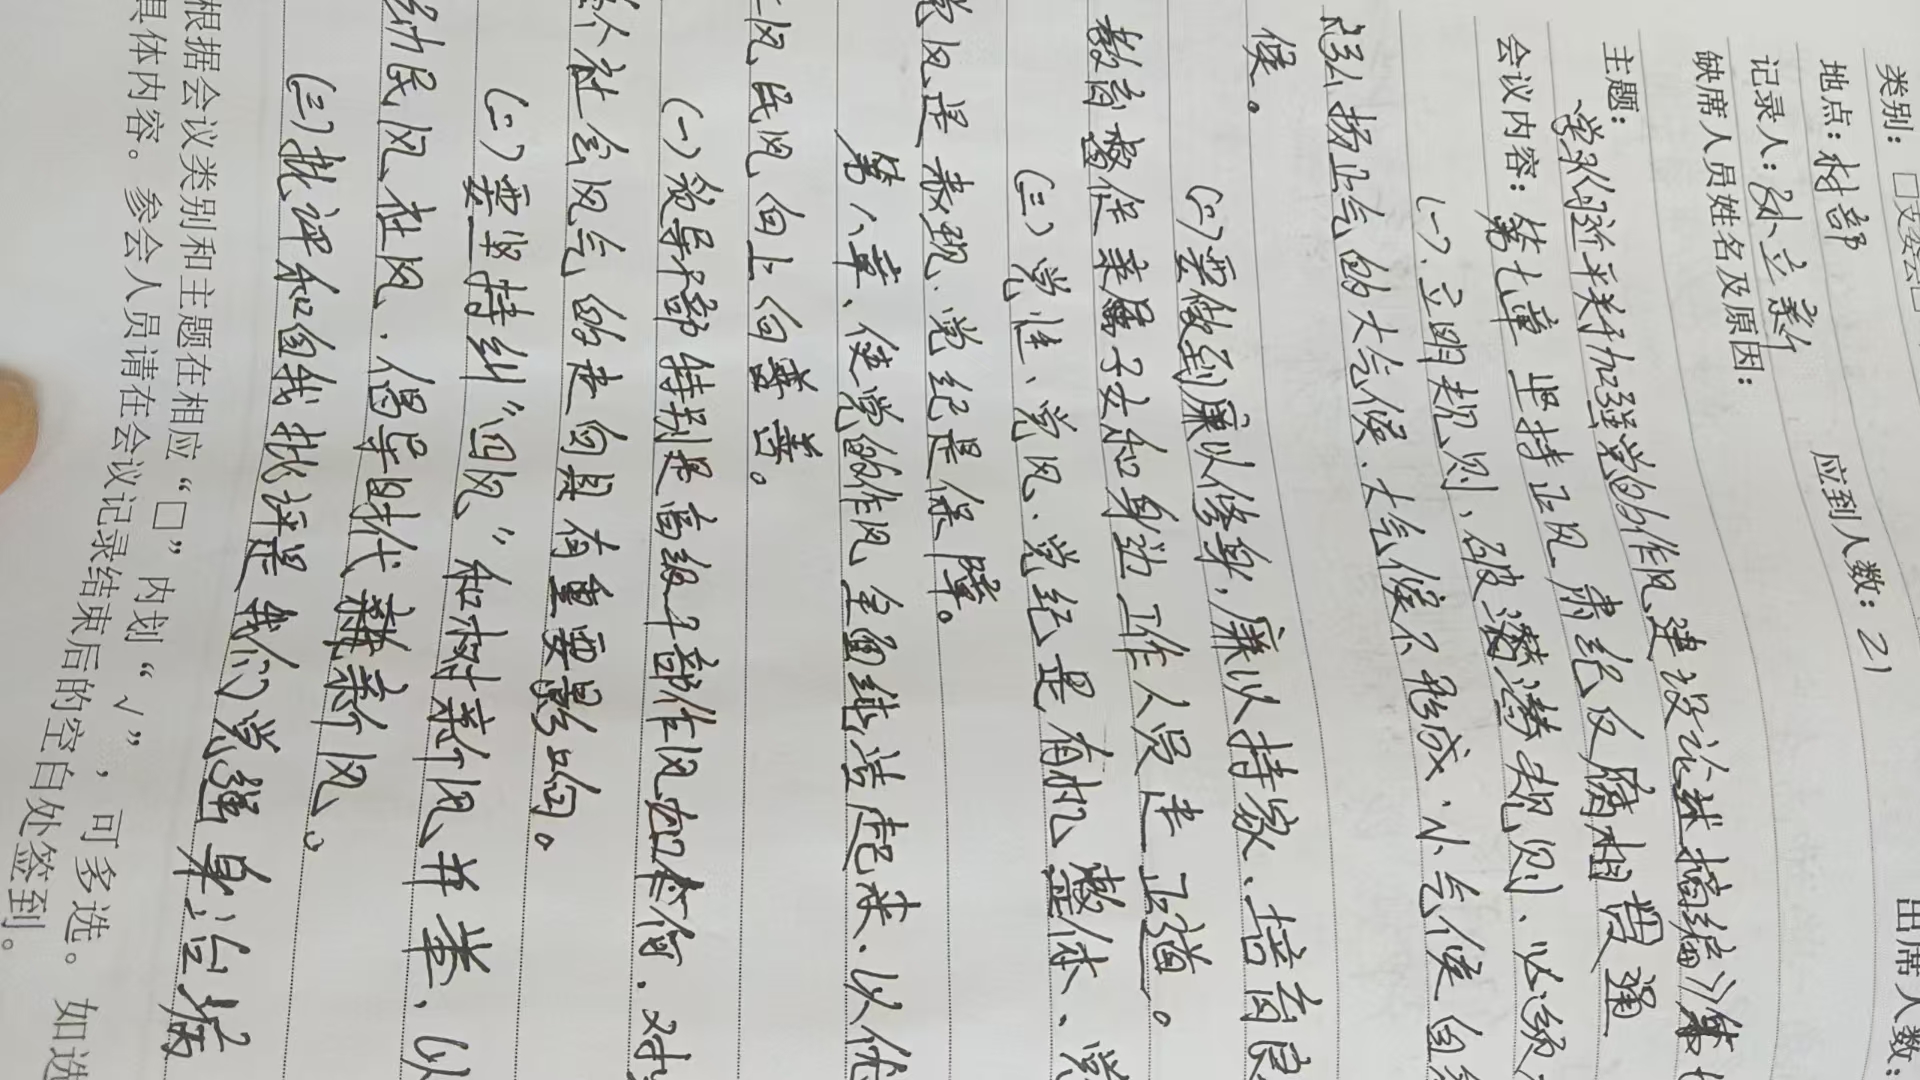 类别：□支委会□
地点：村部 应到人数：21 出席人数：
记录人：孙立新
缺席人员姓名及原因：
主题：学习《习近平关于加强党的作风建设论述摘编》第七
会议内容：第七章 坚持正风肃纪反腐相贯通
(一)、立明规则，破潜规则、必须
弘扬正气的大气候、大气候不形成、小气候自
候。
(二)要做到廉以修身，廉以持家、培育良
教育督促亲属子女和身边工作人员走正道。
(三)党性、党风、党纪是有机整体、党
党风是表现、党纪是保障。
第八章、使党的作风全面纯洁起来、以优
风民风向上向善。
(一)领导干部特别是高级干部作风如何、对
个社会风气的走向具有重要影响。
(二)要坚持纠“四风”和树新风并举、以
动民风社风、倡导时代新风。
(三)批评和自我批评是我们党强身治病
根据会议类别和主题在相应“□”内划“√”，可多选。如选
具体内容。参会人员请在会议记录结束后的空白处签到。